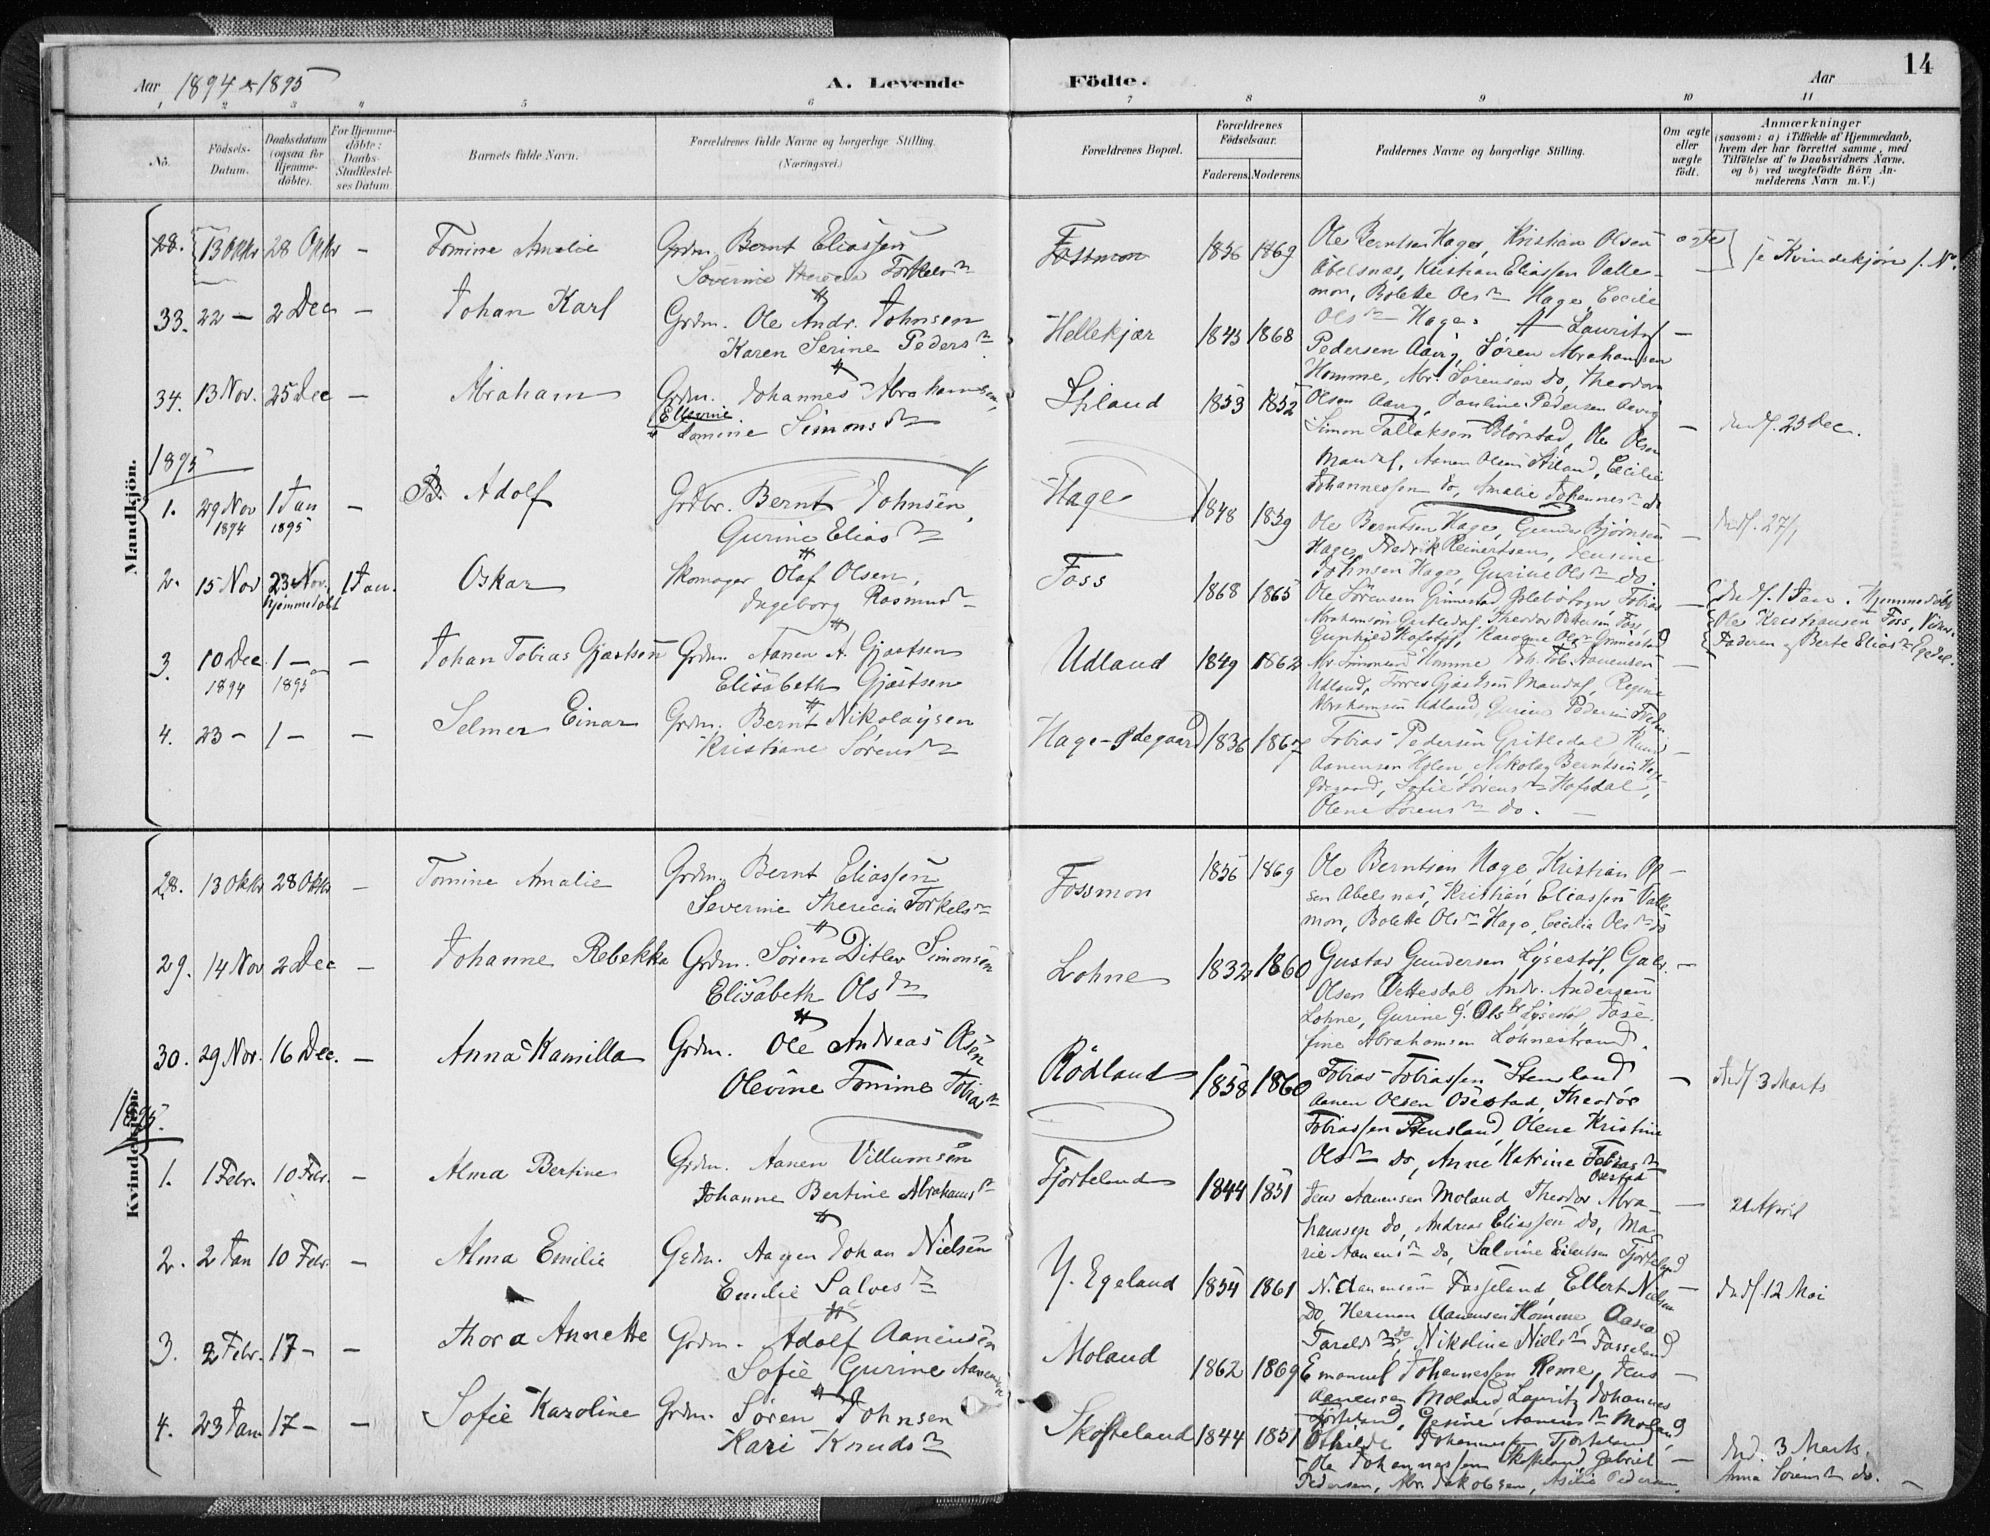 14
Aar 1894 & 1895
A. Levende Födte.
Aar
1 2 3 4 5 6 7 8 9 10 11
No. Födsels-Datum. Daabsdatum (ogsaa for Hjemme-döbte). For Hjemme-döbte: Daabs-Stadfæstel-ses Datum Barnets fulde Navn. Forældrenes fulde Navne og borgerlige Stilling. (Næringsvei.) Forældrenes Bopæl. Forældrenes Födselsaar. Faderens. Moderens. Faddernes Navne og borgerlige Stilling. Om ægte eller uægte födt. Anmærkninger (saasom: a) i Tilfælde af Hjemmedaab, hvem der har forrettet samme, med Tilföielse af to Daabsvidners Navne, og b) ved uægtefödte Börn An-melderens Navn m. V.)
Mandkjön.
28. 13 Oktbr 28 Oktbr — Tomine Amalie Grdm. Bernt Eliassen
Severine Therecia Torkelsdtr
Fossmon 1856 1869 Ole Berntsen Hage, Kristian Olsen
Abelsnæs, Kristian Eliassen Valle-
mon, Bolette Olsdtr Hage, Cecilie
Olsdtr Hage.
ægte se Kvindekjön f. No.
33. 22 — 2 Dec — Johan Karl Grdm. Ole Andr. Johnsen
Karen Serine Pedersdtr
Hellekjær 1843 1868 Lauritz
Pedersen Aavig, Søren Abrahamsen
Homme, Abr. Sørensen do, Theodor
Olsen Aavig, Pauline Pedersen Aavig
—
34. 13 Nov. 25 Dec — Abraham Grdm. Johannes Abrahamsen,
Ellevine
Tomine Simonsdtr
Stiland 1853 1852
Simon Tallaksen Ole Olsen
Mandal, Aanen Olsen Stiland, Cecilie
Johannessen do, Amalie Johannesdtr do
— 23 Dec.
1895
1. 29 Nov 1894 1 Jan 1895 — B. Adolf Grdbr. Bernt Johnsen,
Gurine Eliasdtr
Hage 1848 1859 Ole Berntsen Hage, Gunder Bjørnsen
Hage, Fredrik Reinertsen, Jensine
Johnsen Hage, Gurine Olsdtr do.
— 27/1
2. 15 Nov 23 Nov. hjemmedöbt 1 Jan. Oskar Skomager Olaf Olsen,
Ingeborg Rasmusdtr
Foss 1868 1865 Ole Sørensen Grimestad, Tobias
Abrahamsen Theodor Pettersen Foss,
Gunhild Karoline Olsdtr Grimestad
— 1 Jan. Hjemmedöbt
Ole Kristiansen Foss,
Faderen og Berte Eliasdtr
3. 10 Dec. 1894 1 — 1895 — Johan Tobias Gjæstsen Grdm. Aanen A. Gjæstsen
Elisabeth Gjæstsen
Udland 1849 1862 Abr. Simonsen Homme, Joh. Tob. Aanensen
Udland, Torres Gjæstsen Mandal, Regine
Abrahamsen Udland, Gurine Pedersen
—
4. 23 — 1 — — Selmer Einar Grdm. Bernt Nikolaysen
Kristiane Sørensdtr
Hage-Ødegaard 1836 1867 Tobias Pedersen
Aanensen Nikolay Berntsen Hage-
Ødegaard, Sofie Sørensdtr Hofsdal,
Olene Sørensdtr do.
—
Kvindekjön.
28. 13 Oktbr 28 Oktbr — Tomine Amalie Grdm. Bernt Eliassen
Severine Therecia Torkelsdtr
Fossmon 1856 1869 Ole Berntsen Hage, Kristian Ol-
sen Abelsnæs, Kristian Eliassen Valle-
mon, Bolette Olsdtr Hage, Cecilia Olsdtr do
—
29. 14 Nov 2 Dec — Johanne Rebekka Grdm. Søren Ditlev Simonsen
Elisabeth Olsdtr
Lohne 1832 1860 Gustav Gundersen Lysestøl, Gabr.
Olsen Vettesdal, Andr. Andersen
Lohne, Gurine G. Olsdtr Lysestøl, Jose-
fine Abrahamsen Lohnestrand.
—
30. 29 Nov. 16 Dec. — Anna Kamilla Grdm. Ole Andreas Olsen
Olevine Tomine Tobiasdtr
Rödland 1858 1860 Tobias Tobiassen Stensland,
Aanen Olsen Osestad, Theodor
Tobiassen Stensland, Olene Kristine
Olsdtr do, Anne Katrine Tobiasdtr
Osestad
— 3 Marts
1895.
1. 1 Febr. 10 Febr. — Alma Bertine Grdm. Aanen Villumsen
Johanne Bertine Abrahamsdtr
Fjorteland 1844 1851 Jens Aanensen Moland, Theodor Abra-
hamsen do, Andreas Eliassen do, Ma-
rie Aanensdtr do, Salvine Eilertsen Fjorteland
— 21 April
2. 2 Jan 10 Febr. — Alma Emilie Grdm. Aagen Johan Nielsen
Emilie Salvesdtr
Y. Egeland 1854 1861 N. Aanensen Fasseland, Ellert Nielsen
do, Herman Aanensen Homme, Aasa
Taraldsdtr do, Nikoline Nielsdtr Fasseland
— 12 Mai
3. 2 Febr. 17 — — Thora Annette Grdm. Adolf Aanensen
Sofie Gurine Aanensen
Moland 1862 1869 Emanuel Johannessen Reme, Jens
Aanensen Moland, Lauritz Johannes
Fjorteland, Gesine Aanensdtr Moland,
Othilde Johannessen Fjorteland
—
4. 23 Jan 17 — — Sofie Karoline Grdm. Søren Johnsen
Kari Knudsdtr
Skofteland 1844 1851
Ole Johannessen Skofteland, Gabriel
Pedersen, Abr. Jakobsen, Asilie Pedersen,
— 3 Marts.
Anna Sørensdtr do. —